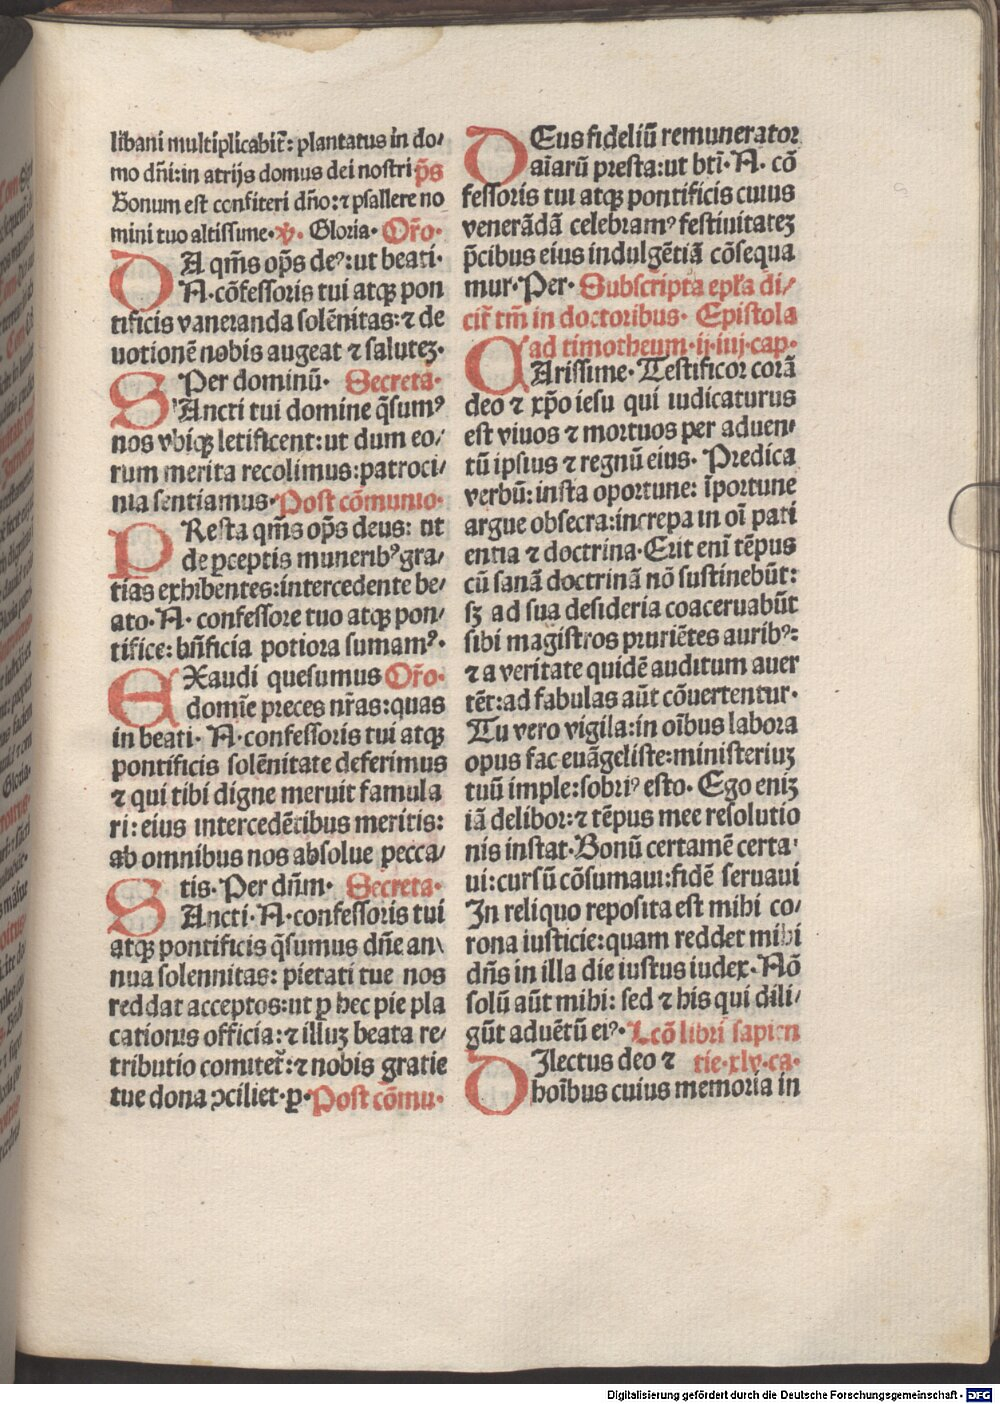 libani multiplicabit̃: plantatus in do/
mo dñi: in atrijs domus dei nostri p̃s
Bonum est confiteri dño: ⁊ psallere no
mini tuo altissime. ℣. Gloria. Or̃o.
DA qm̃s op̃s deꝰ: ut beati.
N. cõfessoris tui atqꝫ pon
tificis vaneranda solẽnitas: ⁊ de
uotionẽ nobis augeat ⁊ saluteꝫ.
Per dominũ. Secreta.
SAncti tui domine q̃sumꝰ
nos vbiqꝫ letificent: ut dum eo/
rum merita recolimus: patroci/
nia sentiamus. Post cõmunio.
PResta qm̃s op̃s deus: ut
de ꝑceptis muneribꝰ gra/
tias exhibentes: intercedente be/
ato. N. confessore tuo atqꝫ pon/
tifice: bñficia potiora sumamꝰ.
EXaudi quesumus Or̃o.
domĩe preces nr̃as: quas
in beati. N. confessoris tui atqꝫ
pontificis solẽnitate deferimus
⁊ qui tibi digne meruit famula
ri: eius intercedẽtibus meritis:
ab omnibus nos absolue pecca/
tis. Per dñm. Secreta.
SAncti. N. confessoris tui
atqꝫ pontificis q̃sumus dñe an\
nua solennitas: pietati tue nos
reddat acceptos: ut ꝑ hec pie pla
cationis officia: ⁊ illuꝫ beata re/
tributio comitet̃: ⁊ nobis gratie
tue dona ꝯciliet. ꝑ. Post cõmu.
DEus fideliũ remunerator
aĩarũ presta: ut bt̃i. N. cõ
fessoris tui atqꝫ pontificis cuius
venerãdã celebramꝰ festiuitateꝫ
p̃cibus eius indulgẽtiã cõsequa
mur. Per. Subscripta ep̃ła di/
cit̃ tm̃ in doctoribus. Epistola
ad timotheum. ij. iiij. cap.
CArissime. Testificor corã
deo ⁊ xp̃o iesu qui iudicaturus
est viuos ⁊ mortuos per aduen/
tũ ipsius ⁊ regnũ eius. Predica
verbũ: insta oportune: ĩportune
argue obsecra: increpa in oĩ pati
entia ⁊ doctrina. Erit enĩ tẽpus
cũ sanã doctrinã nõ sustinebũt:
sꝫ ad sua desideria coaceruabũt
sibi magistros pruriẽtes auribꝰ:
⁊ a veritate quidẽ auditum auer
tẽt: ad fabulas aũt cõuertentur.
Tu vero vigila: in oĩbus labora
opus fac euãgeliste: ministeriuꝫ
tuũ imple: sobriꝰ esto. Ego eniꝫ
iã delibor: ⁊ tẽpus mee resolutio
nis instat. Bonũ certamẽ certa/
ui: cursũ cõsumaui: fidẽ seruaui
In reliquo reposita est mihi co/
rona iusticie: quam reddet mihi
dñs in illa die iustus iudex. Nõ
solũ aũt mihi: sed ⁊ his qui dili/
gũt aduẽtũ eiꝰ. Lcõ libri sapien
DIlectus deo ⁊ tie. xlv. ca.
hoĩbus cuius memoria in
Digitalisierung gefördert durch die Deutsche Forschungsgemeinschaft - DFG